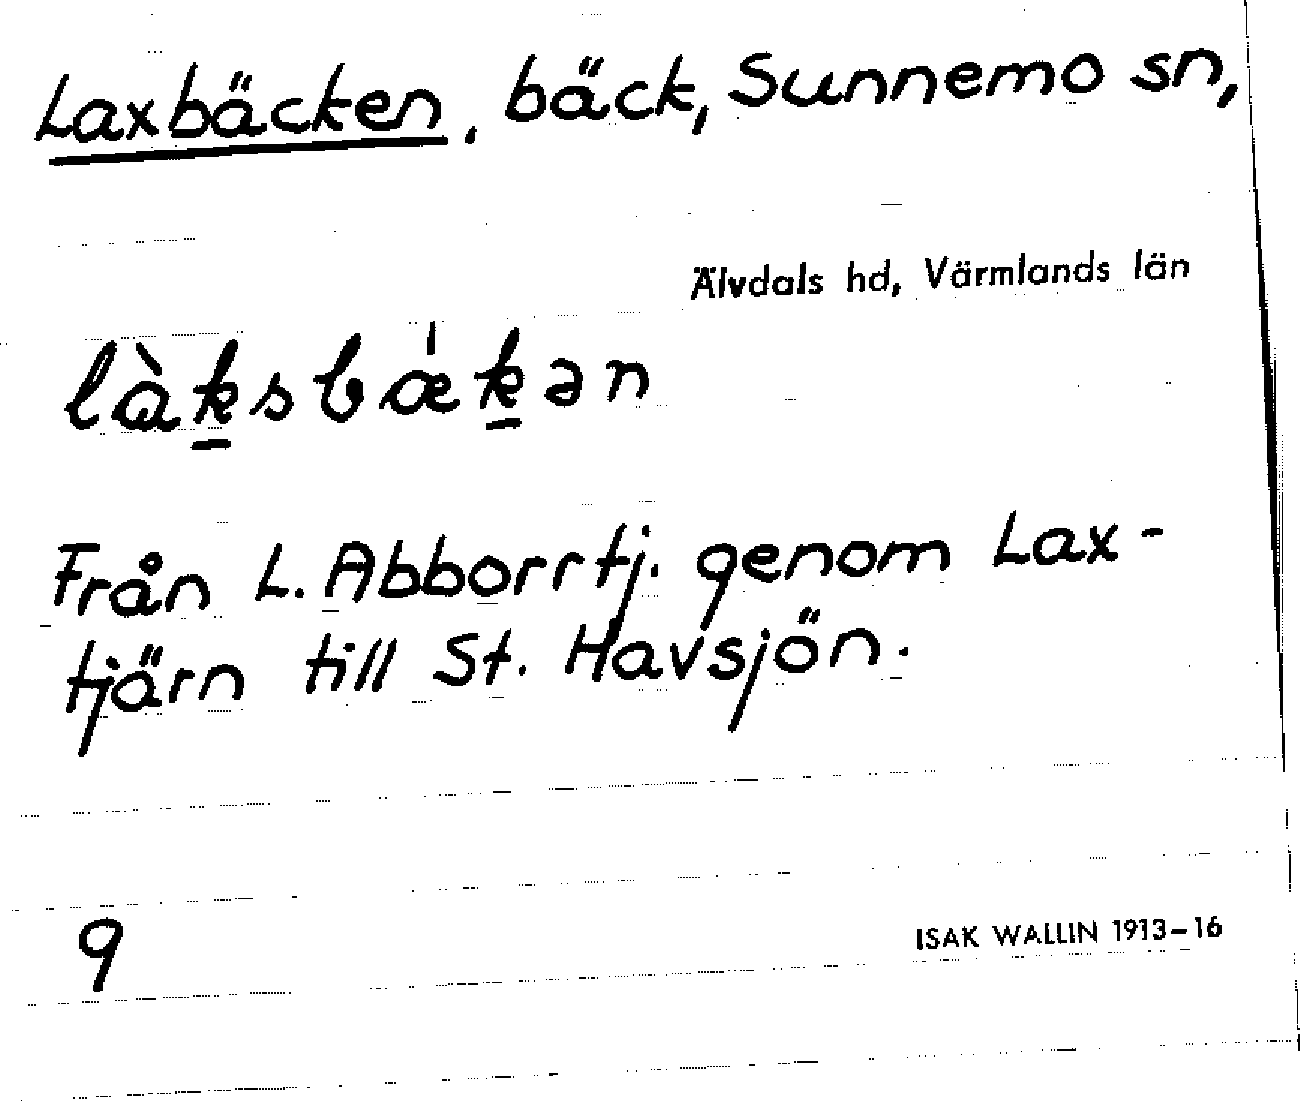 Laxbäcken, bäck, Sunnemo sn,
Älvdals hd, Värmlands län
làk̲sbæ̍k̲ən
Från L. Abborrtj. genom Lax-
tjärn till St. Havsjön.
9
ISAK WALLIN 1913-16